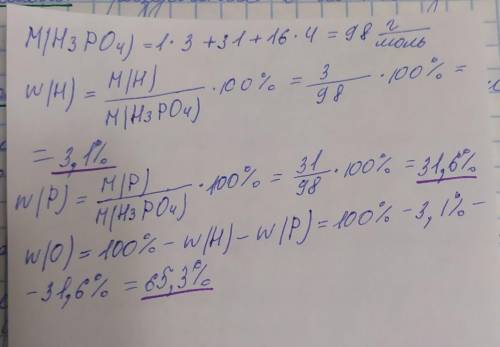 M(H₃PO₄) = 1·3 + 31 + 16·4 = 98 г/моль
w(H) = M(H)/M(H₃PO₄) · 100% = 3/98 · 100% =
= 3,1%
w(P) = M(P)/M(H₃PO₄) · 100% = 31/98 · 100% = 31,6%
w(O) = 100% - w(H) - w(P) = 100% - 3,1% -
- 31,6% = 65,3%